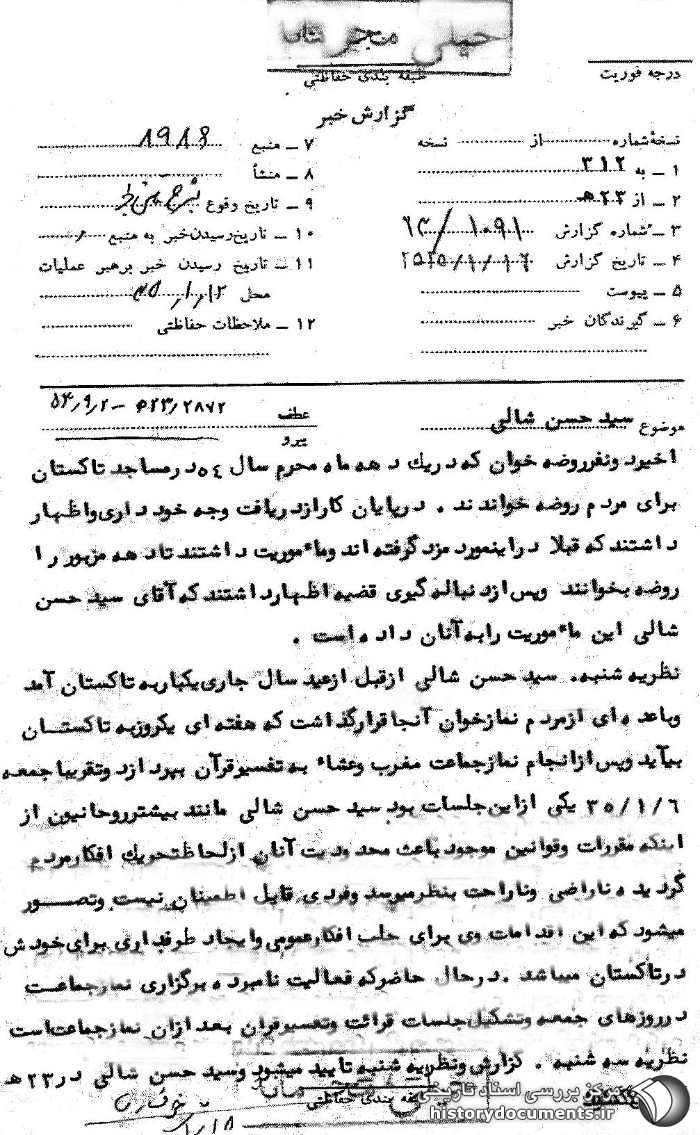 خیلی
طبقه بندی حفاظتی
درجه فوریت
گزارش خبر
نسخهٔ شماره ........ از ........ نسخه
۱ ــ به ۳۱۲
۲ ــ از ۲۳ ه‍
۳ ــ شماره گزارش
۴ ــ تاریخ گزارش ۲۵۳۵/۱/۱۶
۵ ــ پیوست
۶ ــ گیرندگان خبر
۷ ــ منبع
۸ ــ منشأ
۹ ــ تاریخ وقوع
۱۰ ــ تاریخ رسیدن خبر به منبع
۱۱ ــ تاریخ رسیدن خبر برهبر عملیات
محل
۱۲ ــ ملاحظات حفاظتی
موضوع سید حسن شالی
عطف
پیرو
۵۴/۹/۲ ــ ۵۲۳/۲۸۷۲
اخیرا دو نفر روضه خوان که در یک دهه ماه محرم سال ۵۴ در مساجد تاکستان
برای مردم روضه خواندند . در پایان کار از دریافت وجه خود داری و اظهار
داشتند که قبلا در اینمورد مزد گرفته اند و مأموریت داشتند تا دهه مزبور را
روضه بخوانند وپس از دنباله گیری قضیه اظهار داشتند که آقای سید حسن
شالی این مأموریت را به آنان داده است .
نظریه شنبه. سید حسن شالی از قبل از عید سال جاری یکبار به تاکستان آمد
وبا عده ای از مردم نماز خوان آنجا قرار گذاشت که هفته ای یکروز به تاکستان
بیاید وپس از انجام نماز جماعت مغرب وعشاء به تفسیر قرآن بپردازد وتقریبا جمعه
۳۵/۱/۶ یکی از این جلسات بود سید حسن شالی مانند بیشتر روحانیون از
اینکه مقررات وقوانین موجود باعث محدودیت آنان از لحاظ تحریک افکار مردم
گردیده ناراضی وناراحت بنظر میرسد وفردی قابل اطمینان نیست وتصور
میشود که این اقدامات وی برای جلب افکار عمومی وایجاد طرفداری برای خودش
در تاکستان میباشد . در حال حاضر که فعالیت نامبرده برگزاری نماز جماعت
در روزهای جمعه وتشکیل جلسات قرائت وتفسیر قران بعد ازان نماز جماعت است
نظریه سه شنبه . گزارش ونظریه شنبه تایید میشود وسید حسن شالی در ۲۳ ه‍
طبقه بندی حفاظتی
مرکز بررسی اسناد تاریخی
historydocuments.ir